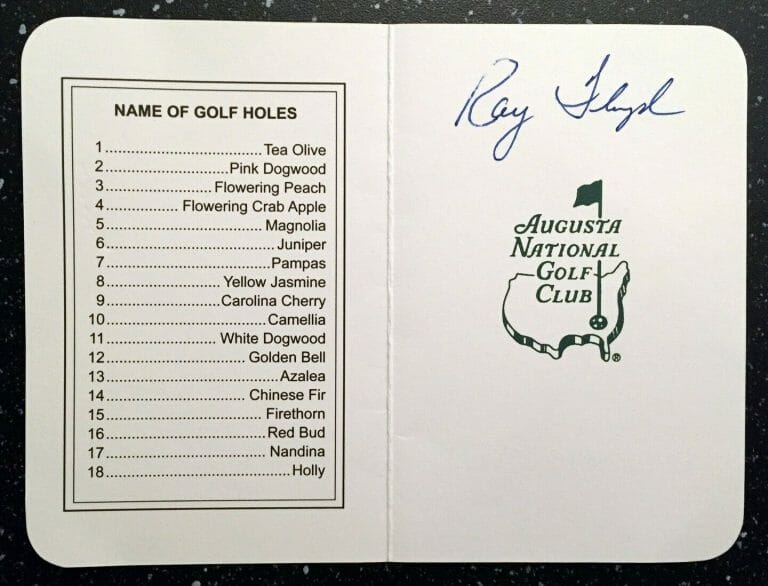 NAME OF GOLF HOLES
1..........................................Tea Olive
2.................................Pink Dogwood
3.............................Flowering Peach
4................... Flowering Crab Apple
5..........................................Magnolia
6.............................................Juniper
7............................................Pampas
8.............................. Yellow Jasmine
9..............................Carolina Cherry
10..........................................Camellia
11............................. White Dogwood
12...................................Golden Bell
13..............................................Azalea
14..................................... Chinese Fir
15......................................... Firethorn
16..........................................Red Bud
17.......................................... Nandina
18................................................Holly
Ray Floyd
AUGUSTA
NATIONAL
GOLF
CLUB
®